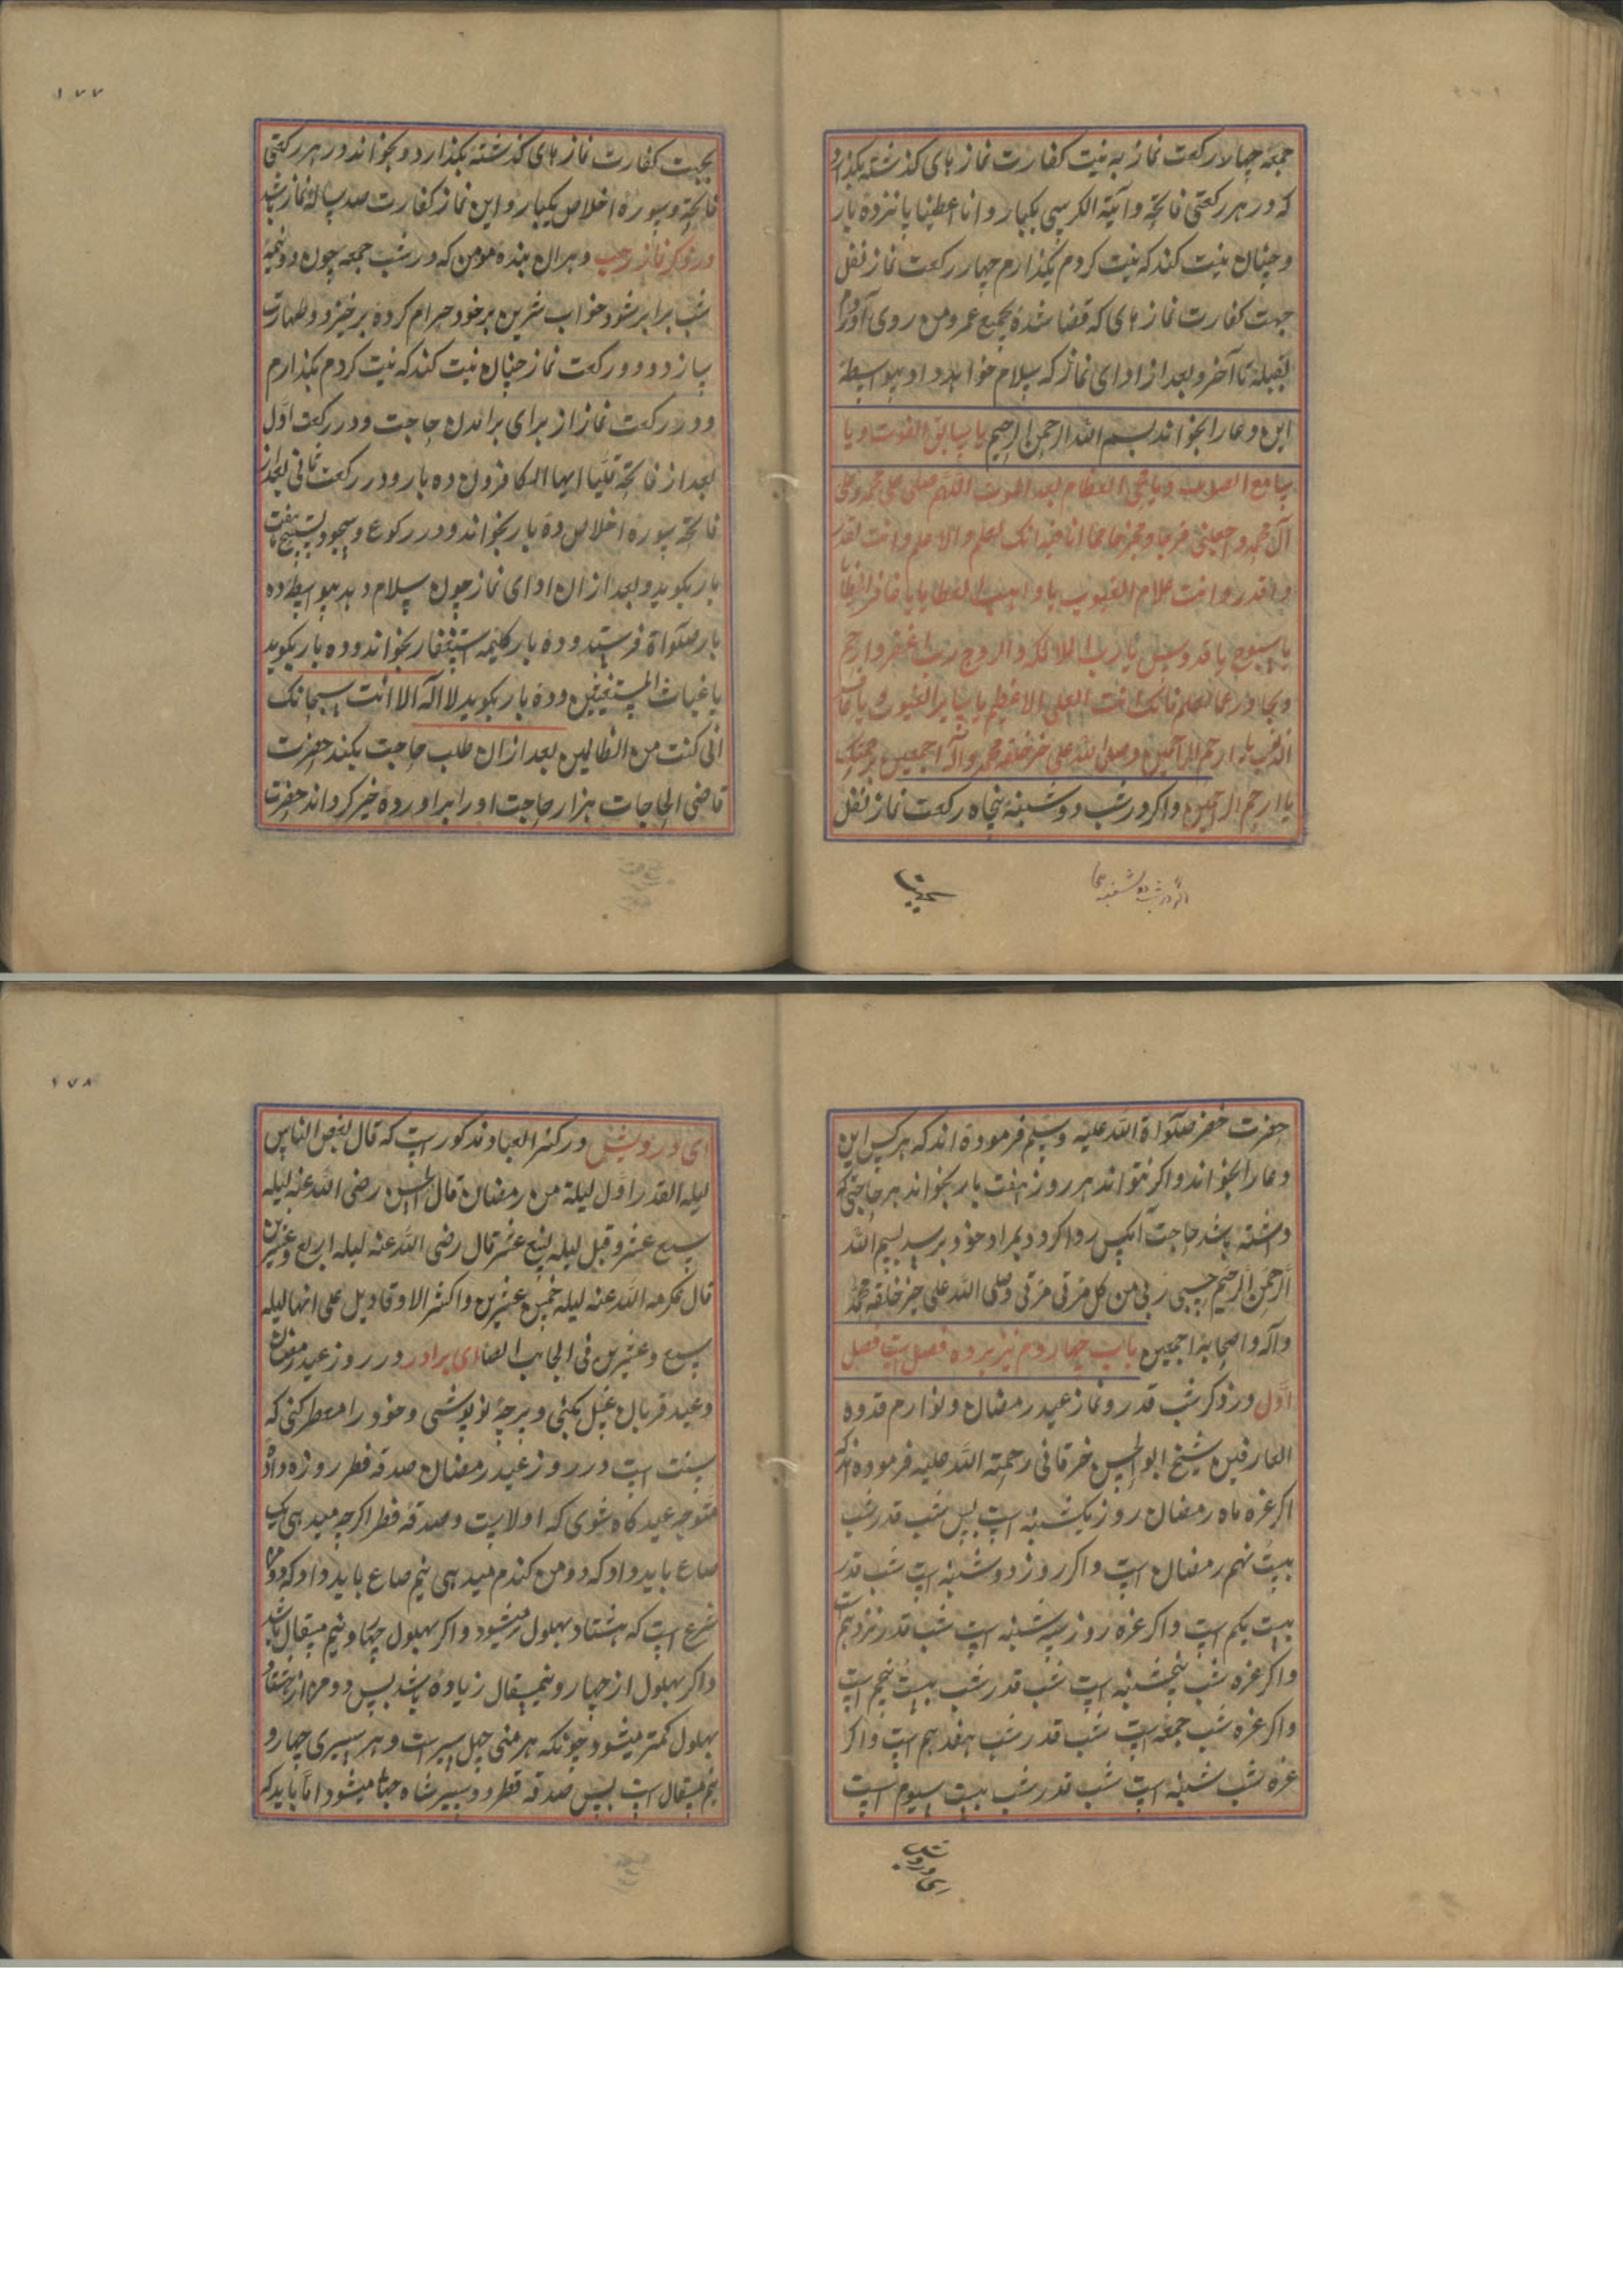 جمعه چهار رکعت نماز به نیت کفارت نماز های کذشته بکذارد
که در هر رکعتی فاتحه و آیة الکرسی یکبار و انا اعطینا پانزده بار
و چنان نیت کند که نیت کردم بکذارم چهار رکعت نماز نفل
جهت کفارت نماز های که قضا شده بجمیع عمر من روی آوردم
بقبله تا آخر و بعد از ادای نماز که سلام خواهد داد بیواسطه
این دعا را بخواند بسم الله الرحمن الرحیم یا سابق الفوت و یا
سامع الصوت و یا محی العظام بعد الموت اللهم صلی علی محمد و علی
آل محمد و اجعلنی فرجا و مخرجا مما انا فیه انک اعلم و لا اعلم و انت تقدر
و لا قدر و انت علام الغیوب یا واهب العطایا یا غافر الخطایا
یا سبوح یا قدوس یا رب الملائکه و الروح رب اغفر و ارحم
و تجاوز عما تعلم فانک انت العلی الاعظیم یا ساتر العیوب یا غافر
الذنوب یا ارحم الراحمین و صلی الله علی خیر خلقه محمد و آله اجمعین برحمتک
یا ارحم الراحمین و اکر در شب دوشنبه پنجاه رکعت نماز نفل
اکر در شب دوشنبه
۱۷۷
بجهت کفارت نماز های کذشته بکذارد و بخواند در هر رکعتی
فاتحه و سوره اخلاص یکبار و این نماز کفارت صد ساله نماز باشد
در ذکر نماز رجب و هر ان بنده مومن که در شب جمعه چون دو نیمه
شب برابر شود خواب شرین بر خود حرام کرده برخیزد و طهارت
سازد و دو رکعت نماز چنان نیت کند که نیت کردم بکذارم
دو رکعت نماز از برای برامدن حاجت و در رکعت اول
بعد از فاتحه قل یا ایها الکافرون ده بار و در رکعت ثانی بعد از
فاتحه سوره اخلاص ده بار بخواند و در رکوع و سجود تسبیح هفت
بار بکوید و بعد از ان ادای نماز چون سلام دهد بیواسطه ده
بار صلواة فرستد و ده بار کلیمه استغفار بخواند و ده بار بکوید
یا غیاث المستغیثین و ده بار بکوید لا اله الا انت سبحانک
انی کنت من الظالمین بعد از ان طلب حاجت بکند حضرت
قاضی الحاجات هزار حاجت او را براورده خیر کرداند حضرت
حضرت خضر صلواة الله علیه و سلم فرموده اند که هر کس این
دعا را بخواند و اکر نتواند هر روز هفت بار بخواند هر حاجتی که
داشته باشد حاجت آنکس روا کردد بمراد خود برسد بسم الله
الرحمن الرحیم حسبی ربی من کل مرتی مرتی و صلی الله علی خیر خلقه محمد
و آله و اصحابه اجمعین باب چهاردوم نیز بر ده فصل است فصل
اول در ذکر شب قدر و نماز عید رمضان و لوازم قدوه
العارفین شیخ ابو الحسن خرقانی رحمته الله علیه فرموده اند که
اکر غره ماه رمضان روز یکشنبه است پس شب قدر شب
بیست نهم رمضان است و اکر روز دوشنبه است شب قدر
بیست یکم است و اکر غره روز سه شنبه است شب قدر نزدهم است
و اکر غره شب پنجشنبه است شب قدر شب بیست پنجم است
و اکر غره شب جمعه است شب قدر شب هفدهم است و اکر
غره شب شنبه است شب قدر شب بیست سیوم است
۱۷۸
ای درویش در کنز العباد مذکور است که قال بعض الناس
لیله القدر اول لیلة من رمضان قال الحسن رضی الله عنه لیله
سبع عشر و قیل لیله تسع عشر قال رضی الله عنه لیله اربع و عشرین
قال عکرمه الله عنه لیله خمس عشرین و اکثر الاوقاویل علی انها لیله
سبع و عشرین فی الجانب الصفا ای برادر در روز عید رمضان
و عید قربان غسل بکنی و پرچه نو پوشی و خود را معطر کنی که
سنت است در روز عید رمضان صدقه فطر روزه داده
متوجه عید کاه شوی که اولا ست و صدقه فطر اکر جو میدهی یک
صاع باید داد که دو من کندم میدهی نیم صاع باید داد که
شرع است که هشتاد بهلول میشود و اکر بهلول چهار و نیم مثقال باشد
و اکر بهلول از چهار و نیمثقال زیاده باشد پس دو من از هشتاد
بهلول کمتر میشود چونکه هر منی چهل سیر است و هر سیری چهار و
نیم مثقال است پس صدقه فطر دو سیر شاه جهانی میشود اما باید که